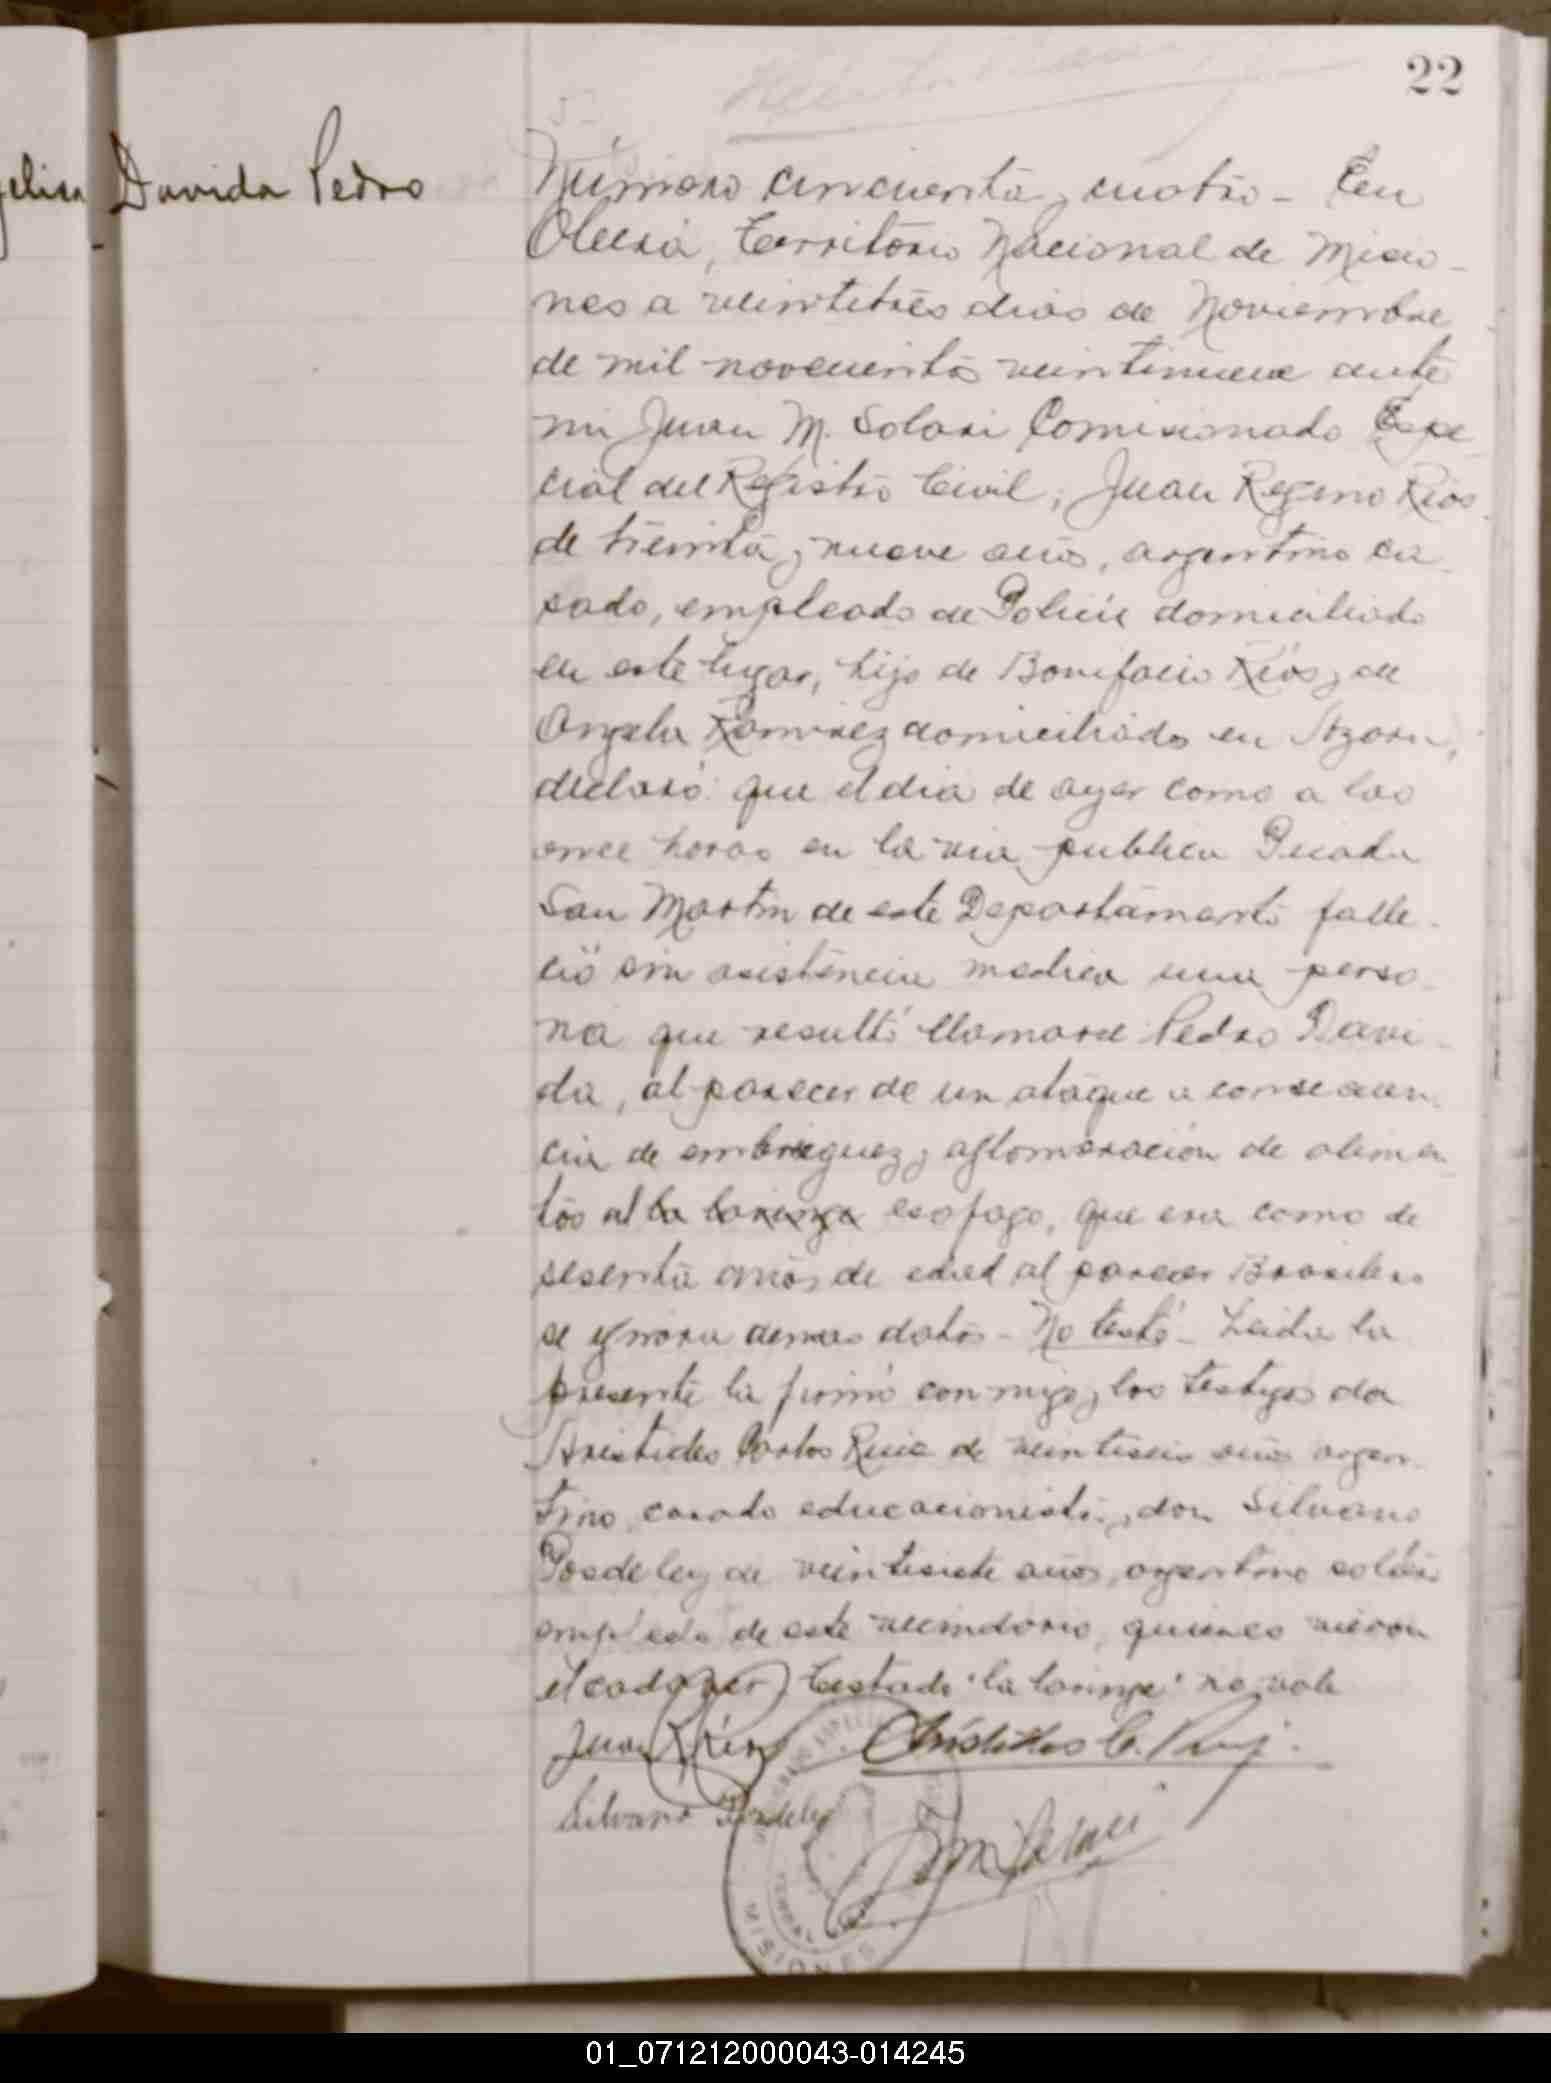 22
Davida Pedro
Número cincuenta y cuatro - En
Oberá, Territorio Nacional de Misio-
nes a veintitrés dias de Noviembre
de mil novecientos veintinueve ante
mi Juan M. Solari Comisionado Espe-
cial del Registro Civil, Juan Regino Rios
de treinta y nueve años, argentino ca-
sado, empleado de Policía domiciliado
en este lugar, hijo de Bonifacio Rios y de
Angela Ramirez domiciliado en Azara,
declaró: que el dia de ayer como a las
once horas en la via publica Picada
San Martin de este Departamento falle-
ció sin asistencia medica una perso-
na que resultó llamarse Pedro Davi-
da, al parecer de un ataque a consecuen-
cia de embriaguez y aglomeración de alimen-
tos al la laringe esofago, que era como de
sesenta años de edad al parecer Brasilero
se ignora demas datos - No testó - Leida la
presente la firmó conmigo y los testigos don
Aristides Carlos Ruiz de veintiseis años argen-
tino, casado educacionista y don Silvano
Posdeley de veintisiete años, argentino soltero
empleado de este vecindario, quienes vieron
el cadaver) Testado "la laringe" no vale
Juan R Rios
Aristides C. Ruiz
Silvano Posdeley
J M Solari
MISIONES
01_071212000043-014245